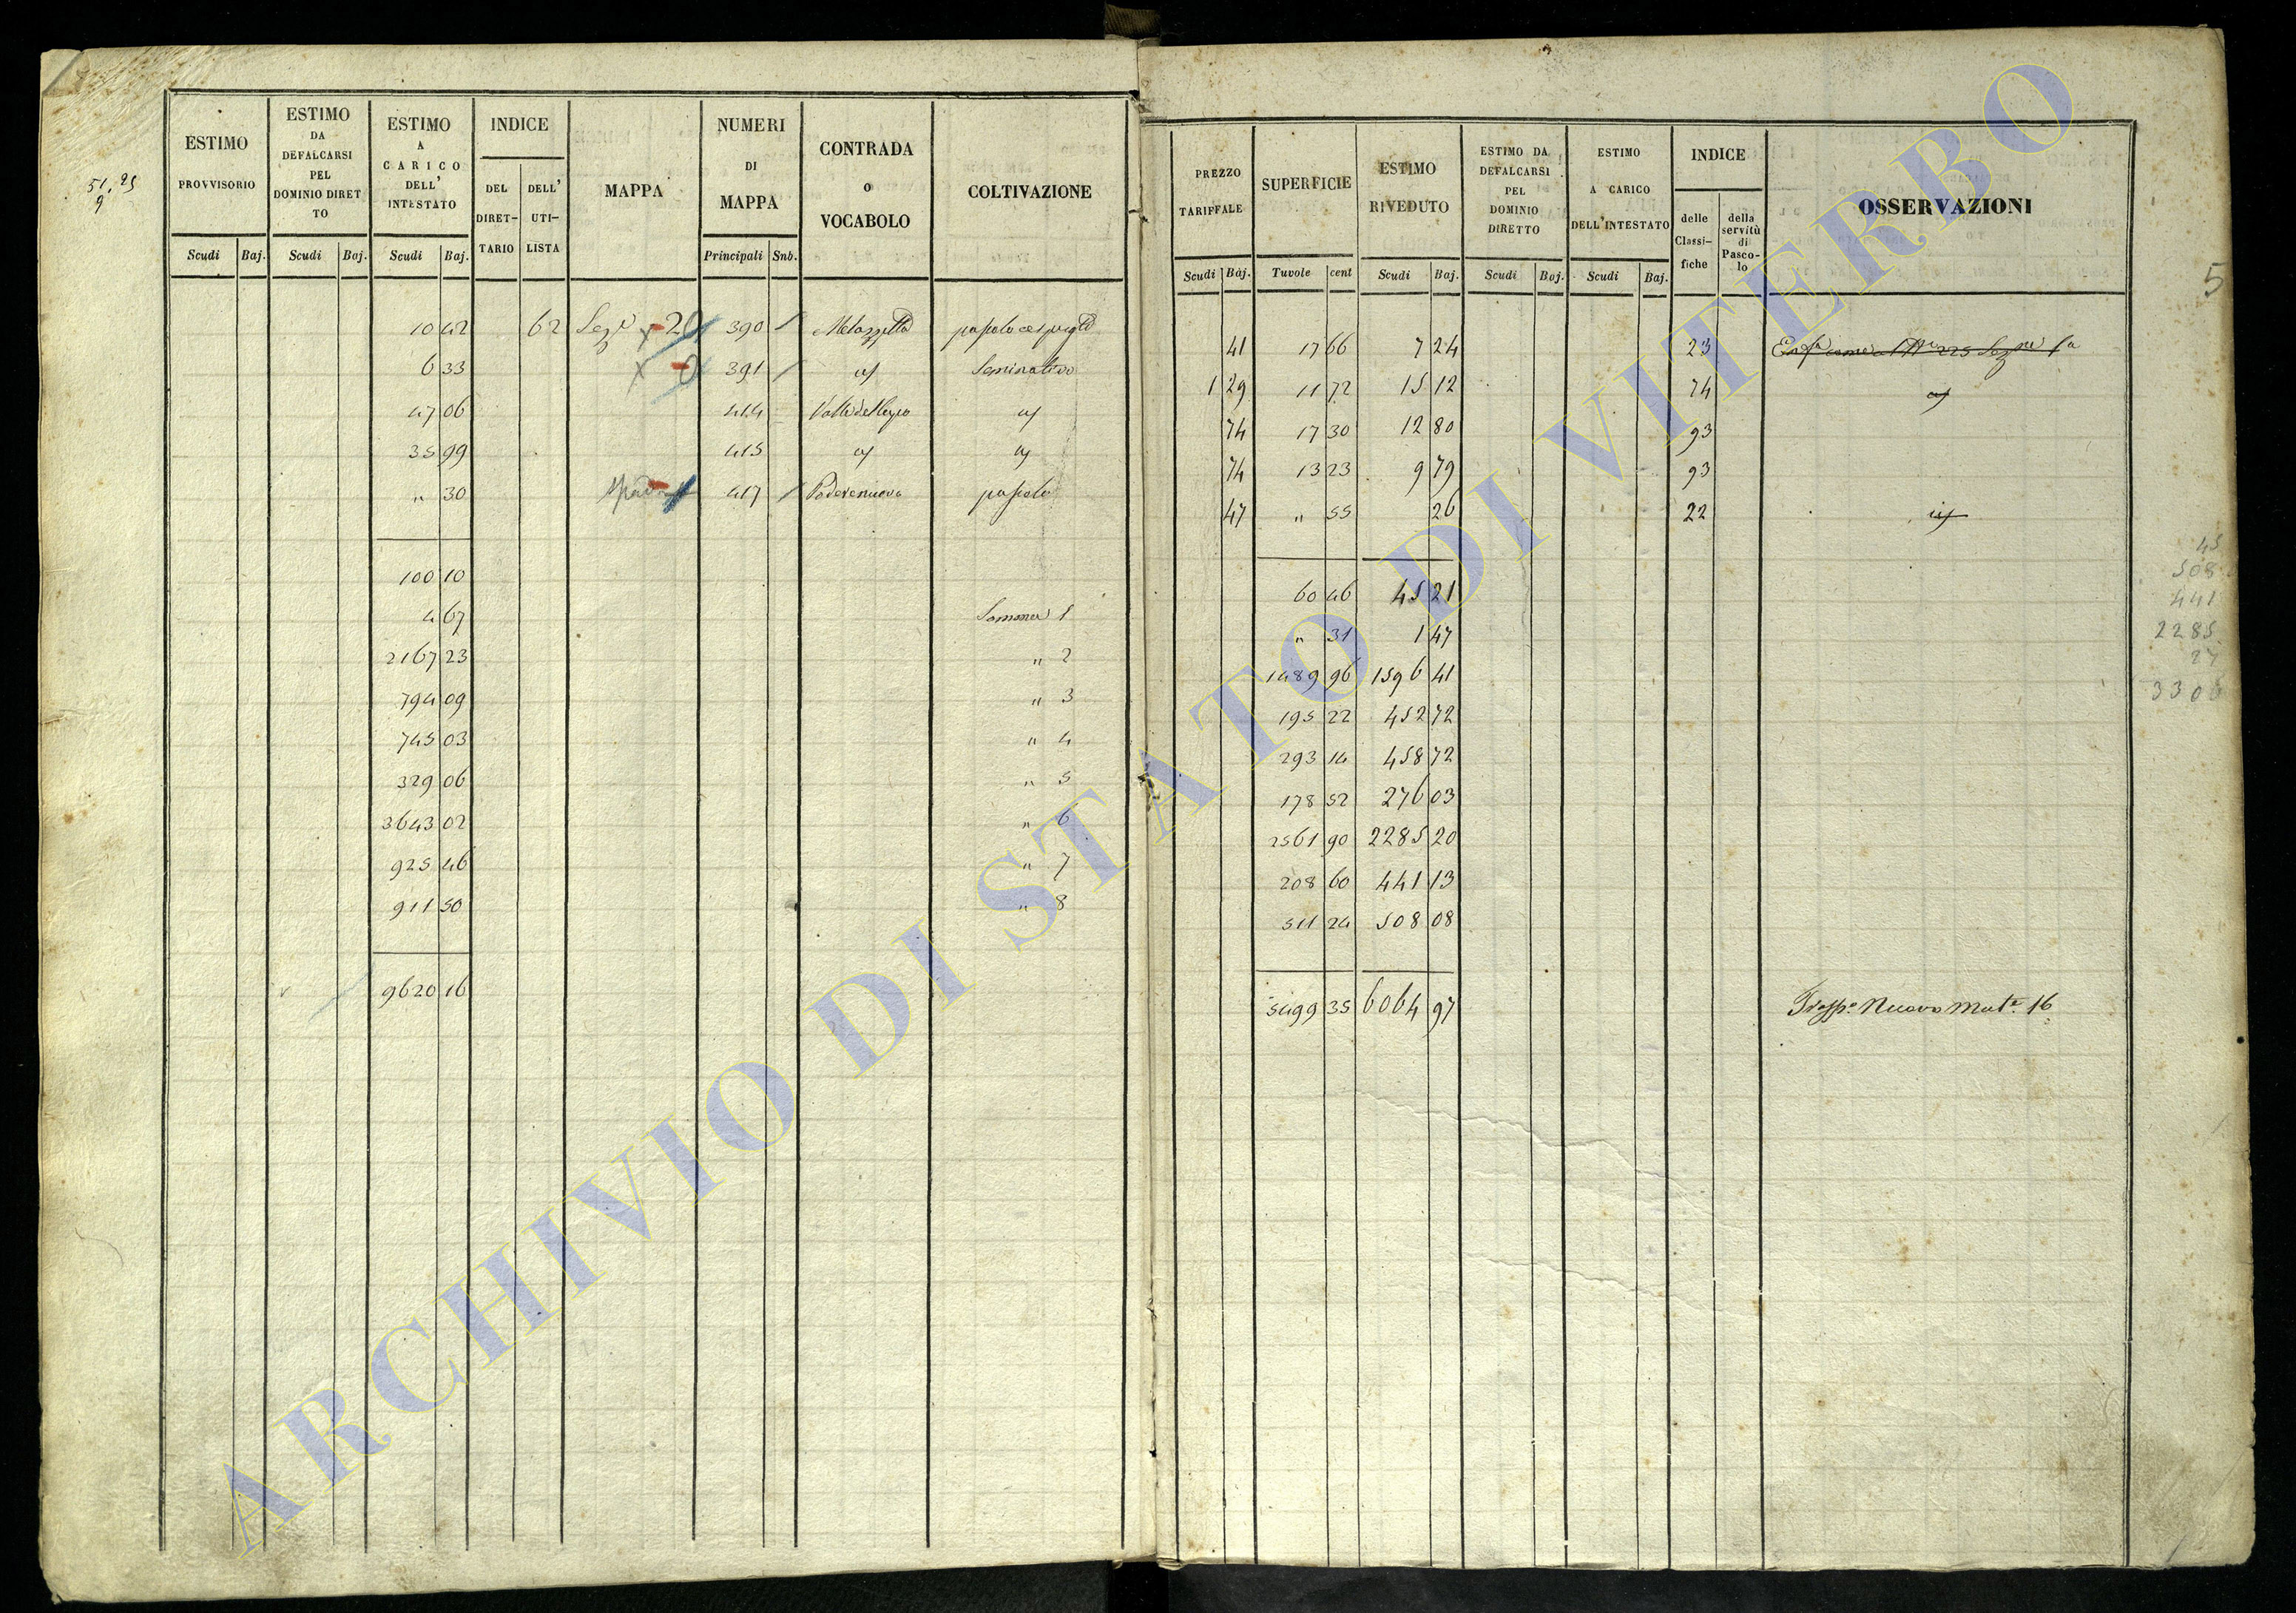 51.25
9
ESTIMO PROVVISORIO
ESTIMO DA DEFALCARSI PEL DOMINIO DIRET TO
ESTIMO A CARICO DELL' INTESTATO
INDICE
DEL DIRET- TARIO
DELL' UTI- LISTA
MAPPA
NUMERI DI MAPPA
CONTRADA o VOCABOLO
COLTIVAZIONE
Scudi Baj. Scudi Baj. Scudi Baj. Principali Snb.
10 42 62 20 390
6 33 391 Seminativo
47 06 414
35 99 415
" 30 417 Poderenuovo pascolo
100 10
4 67 Somma 1
2167 23 " 2
794 09 " 3
745 03 " 4
329 06 " 5
3643 02 " 6
925 46 " 7
911 50 " 8
9620 16
PREZZO TARIFFALE
SUPERFICIE
ESTIMO RIVEDUTO
ESTIMO DA DEFALCARSI PEL DOMINIO DIRETTO
ESTIMO A CARICO DELL'INTESTATO
INDICE
delle Classi- fiche
della servitù di Pasco- lo
OSSERVAZIONI
Scudi Baj. Tuvole cent Scudi Baj. Scudi Baj. Scudi Baj.
5
41 17 66 7 24 23
1 29 11 72 15 12 74
74 17 30 12 80 93
74 13 23 9 79 93
47 " 55 26 22
60 46 45 21
" 31 1 47
1489 96 1596 41
195 22 452 72
293 14 458 72
178 52 276 03
2561 90 2285 20
208 60 441 13
511 24 508 08
5499 35 6064 97 Nuovo Mut. 16
45
508
441
2285
27
3306
ARCHIVIO DI STATO DI VITERBO